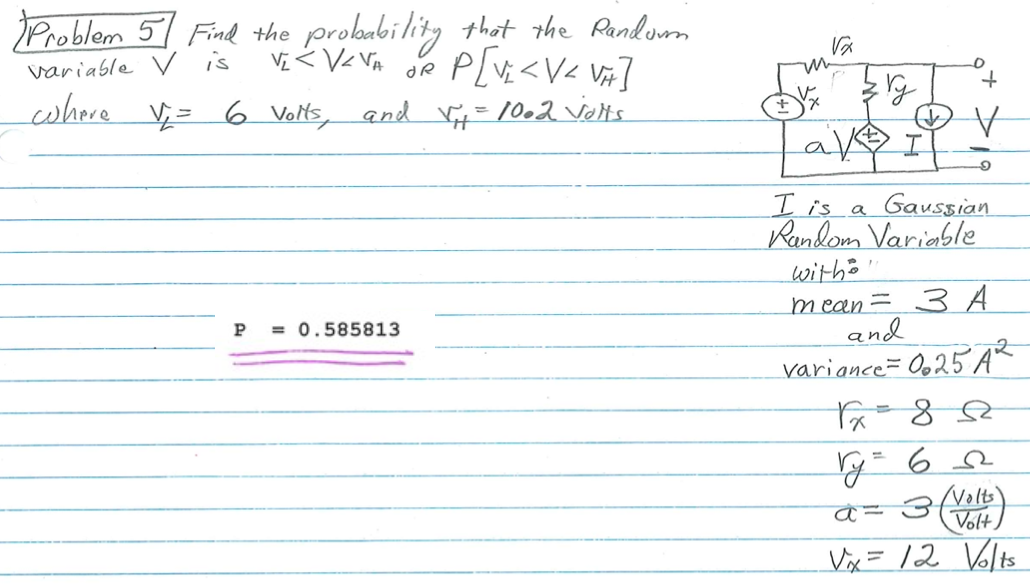 Problem 5 Find the probability that the Random
variable V is vL < V < vH OR P[vL < V < vH]
where vL = 6 Volts, and vH = 10.2 Volts
rx
vx
ry
aV
I
+
V
-
I is a Gaussian
Random Variable
with:
mean = 3 A
and
variance = 0.25 A²
rx = 8 Ω
ry = 6 Ω
a = 3 (Volts/Volt)
vx = 12 Volts
P = 0.585813